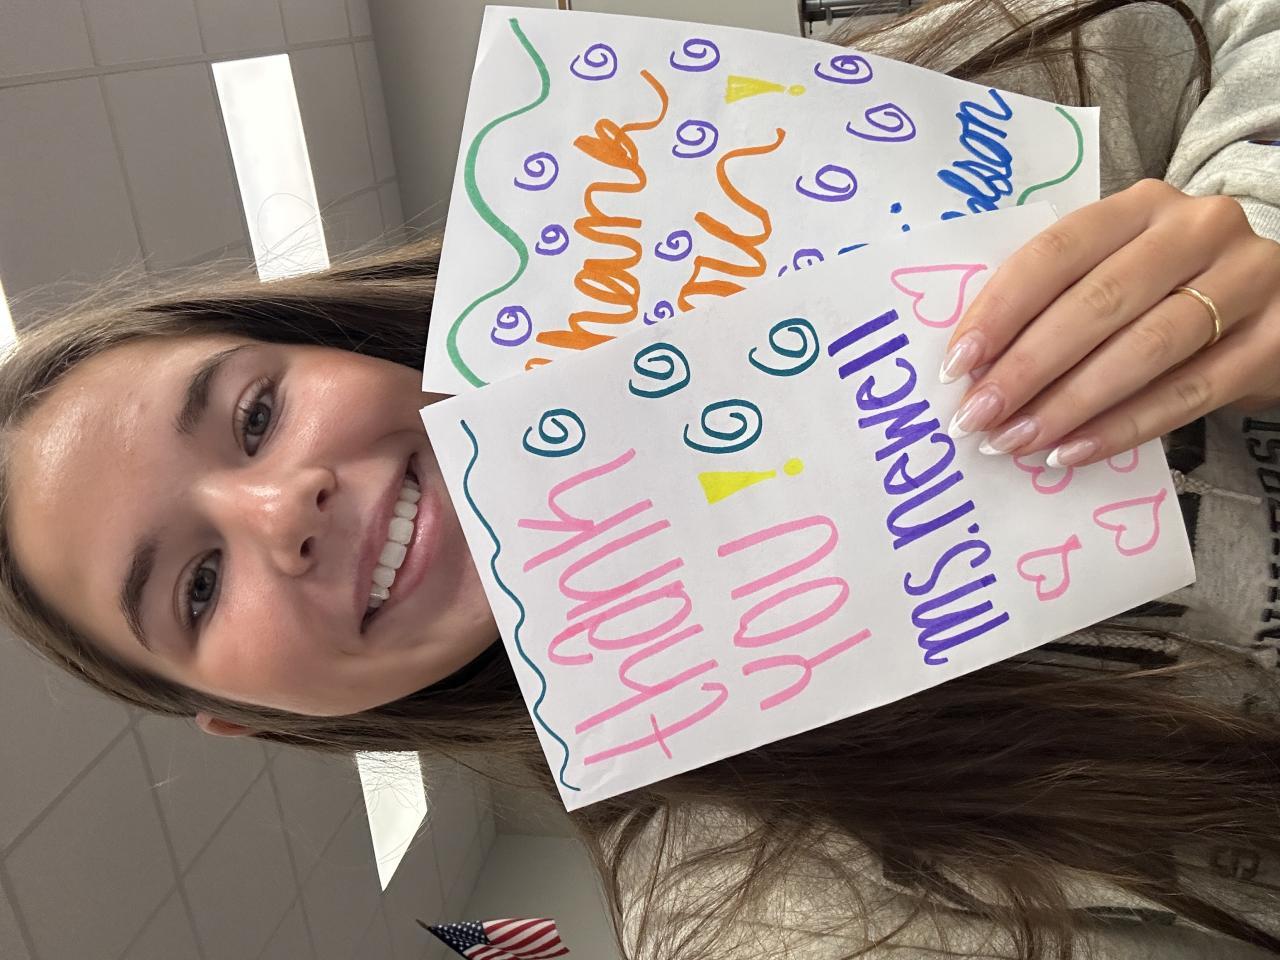 thank
you!
ms.newell
thank
you!